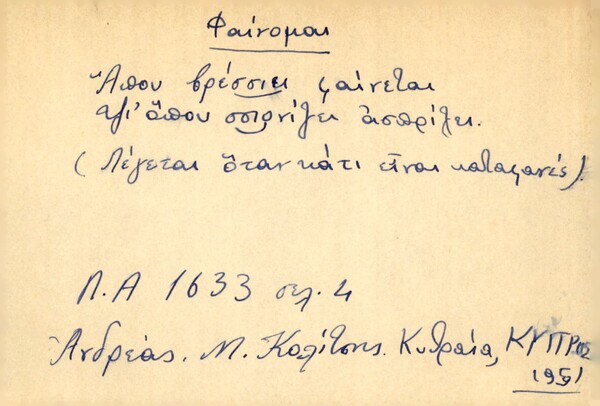 Φαίνομαι
Ἄπου βρέσσιει φαίνεται
τζι' ἄπου σσιονίζει ἀσπρίζει.
(Λέγεται ὅταν κάτι εἶναι καταφανές).
Λ.Α 1633 σελ. 4
Ἀνδρέας. Μ. Καλίτσης. Κυθραία, ΚΥΠΡΟΣ
1951